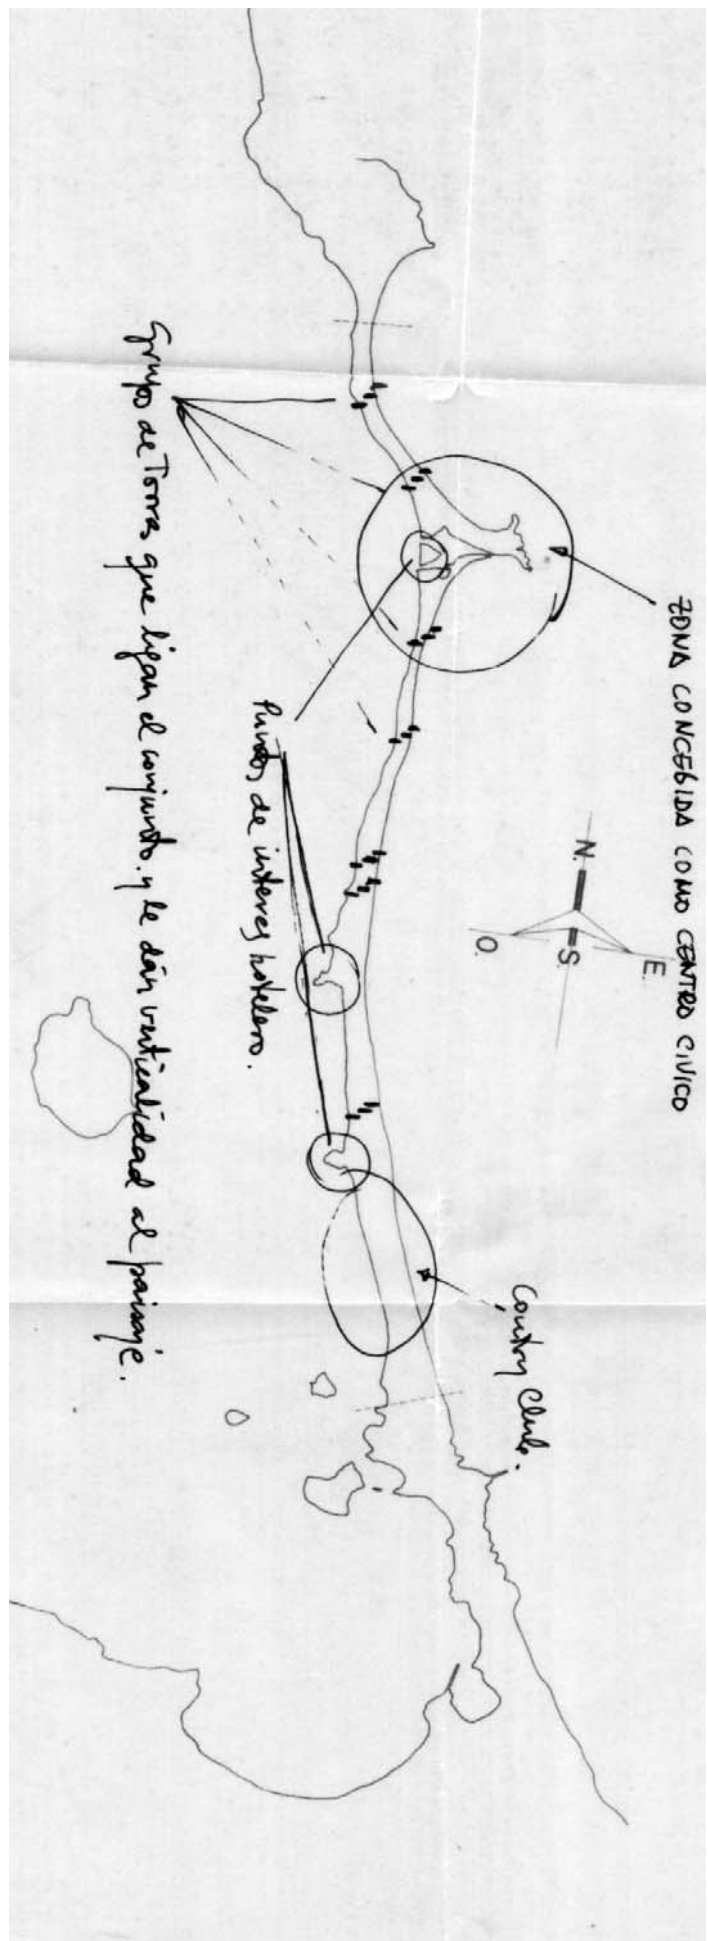 ZONA CONCEBIDA COMO CENTRO CIVICO
N.
S.
E.
O.
Country Club.
Puntos de interes hotelero.
Grupos de Torres que ligan el conjunto. y le dán verticalidad al paisaje.